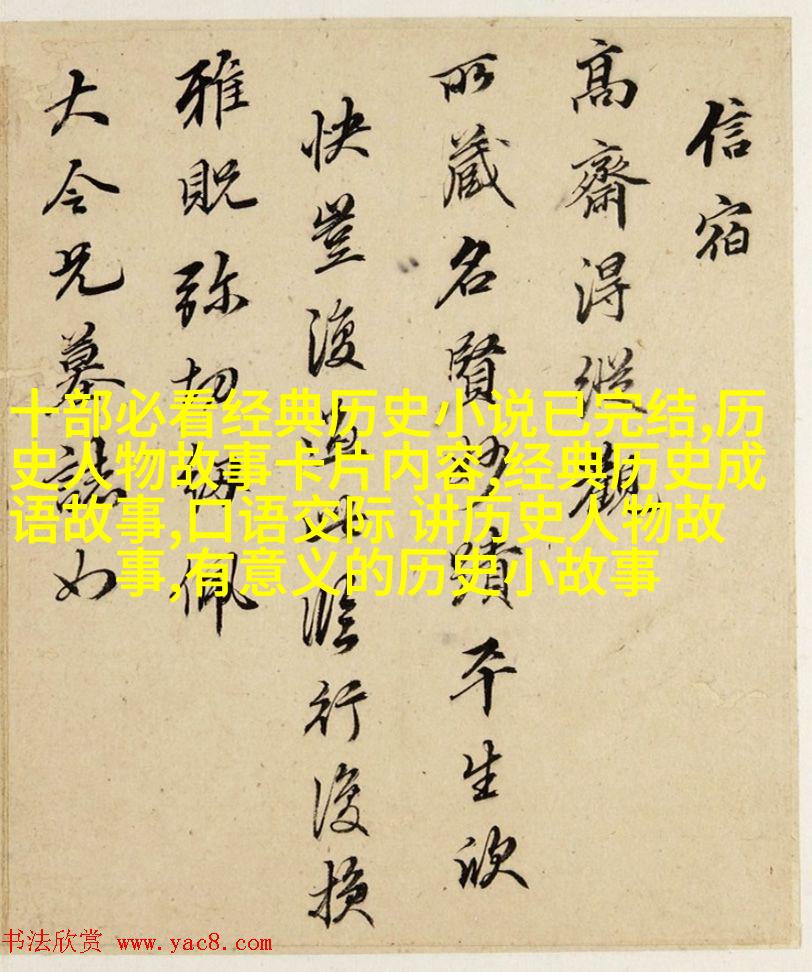 信宿
高齋得縱觀
所藏名賢妙蹟平生欣
快豈復過此臨行復損
雅貺弥切佩
大令兄墓誌如
十部必看经典历史小说已完结,历
史人物故事卡片内容,经典历史成
语故事,口语交际 讲历史人物故
事,有意义的历史小故事
书法欣赏 www.yac8.com